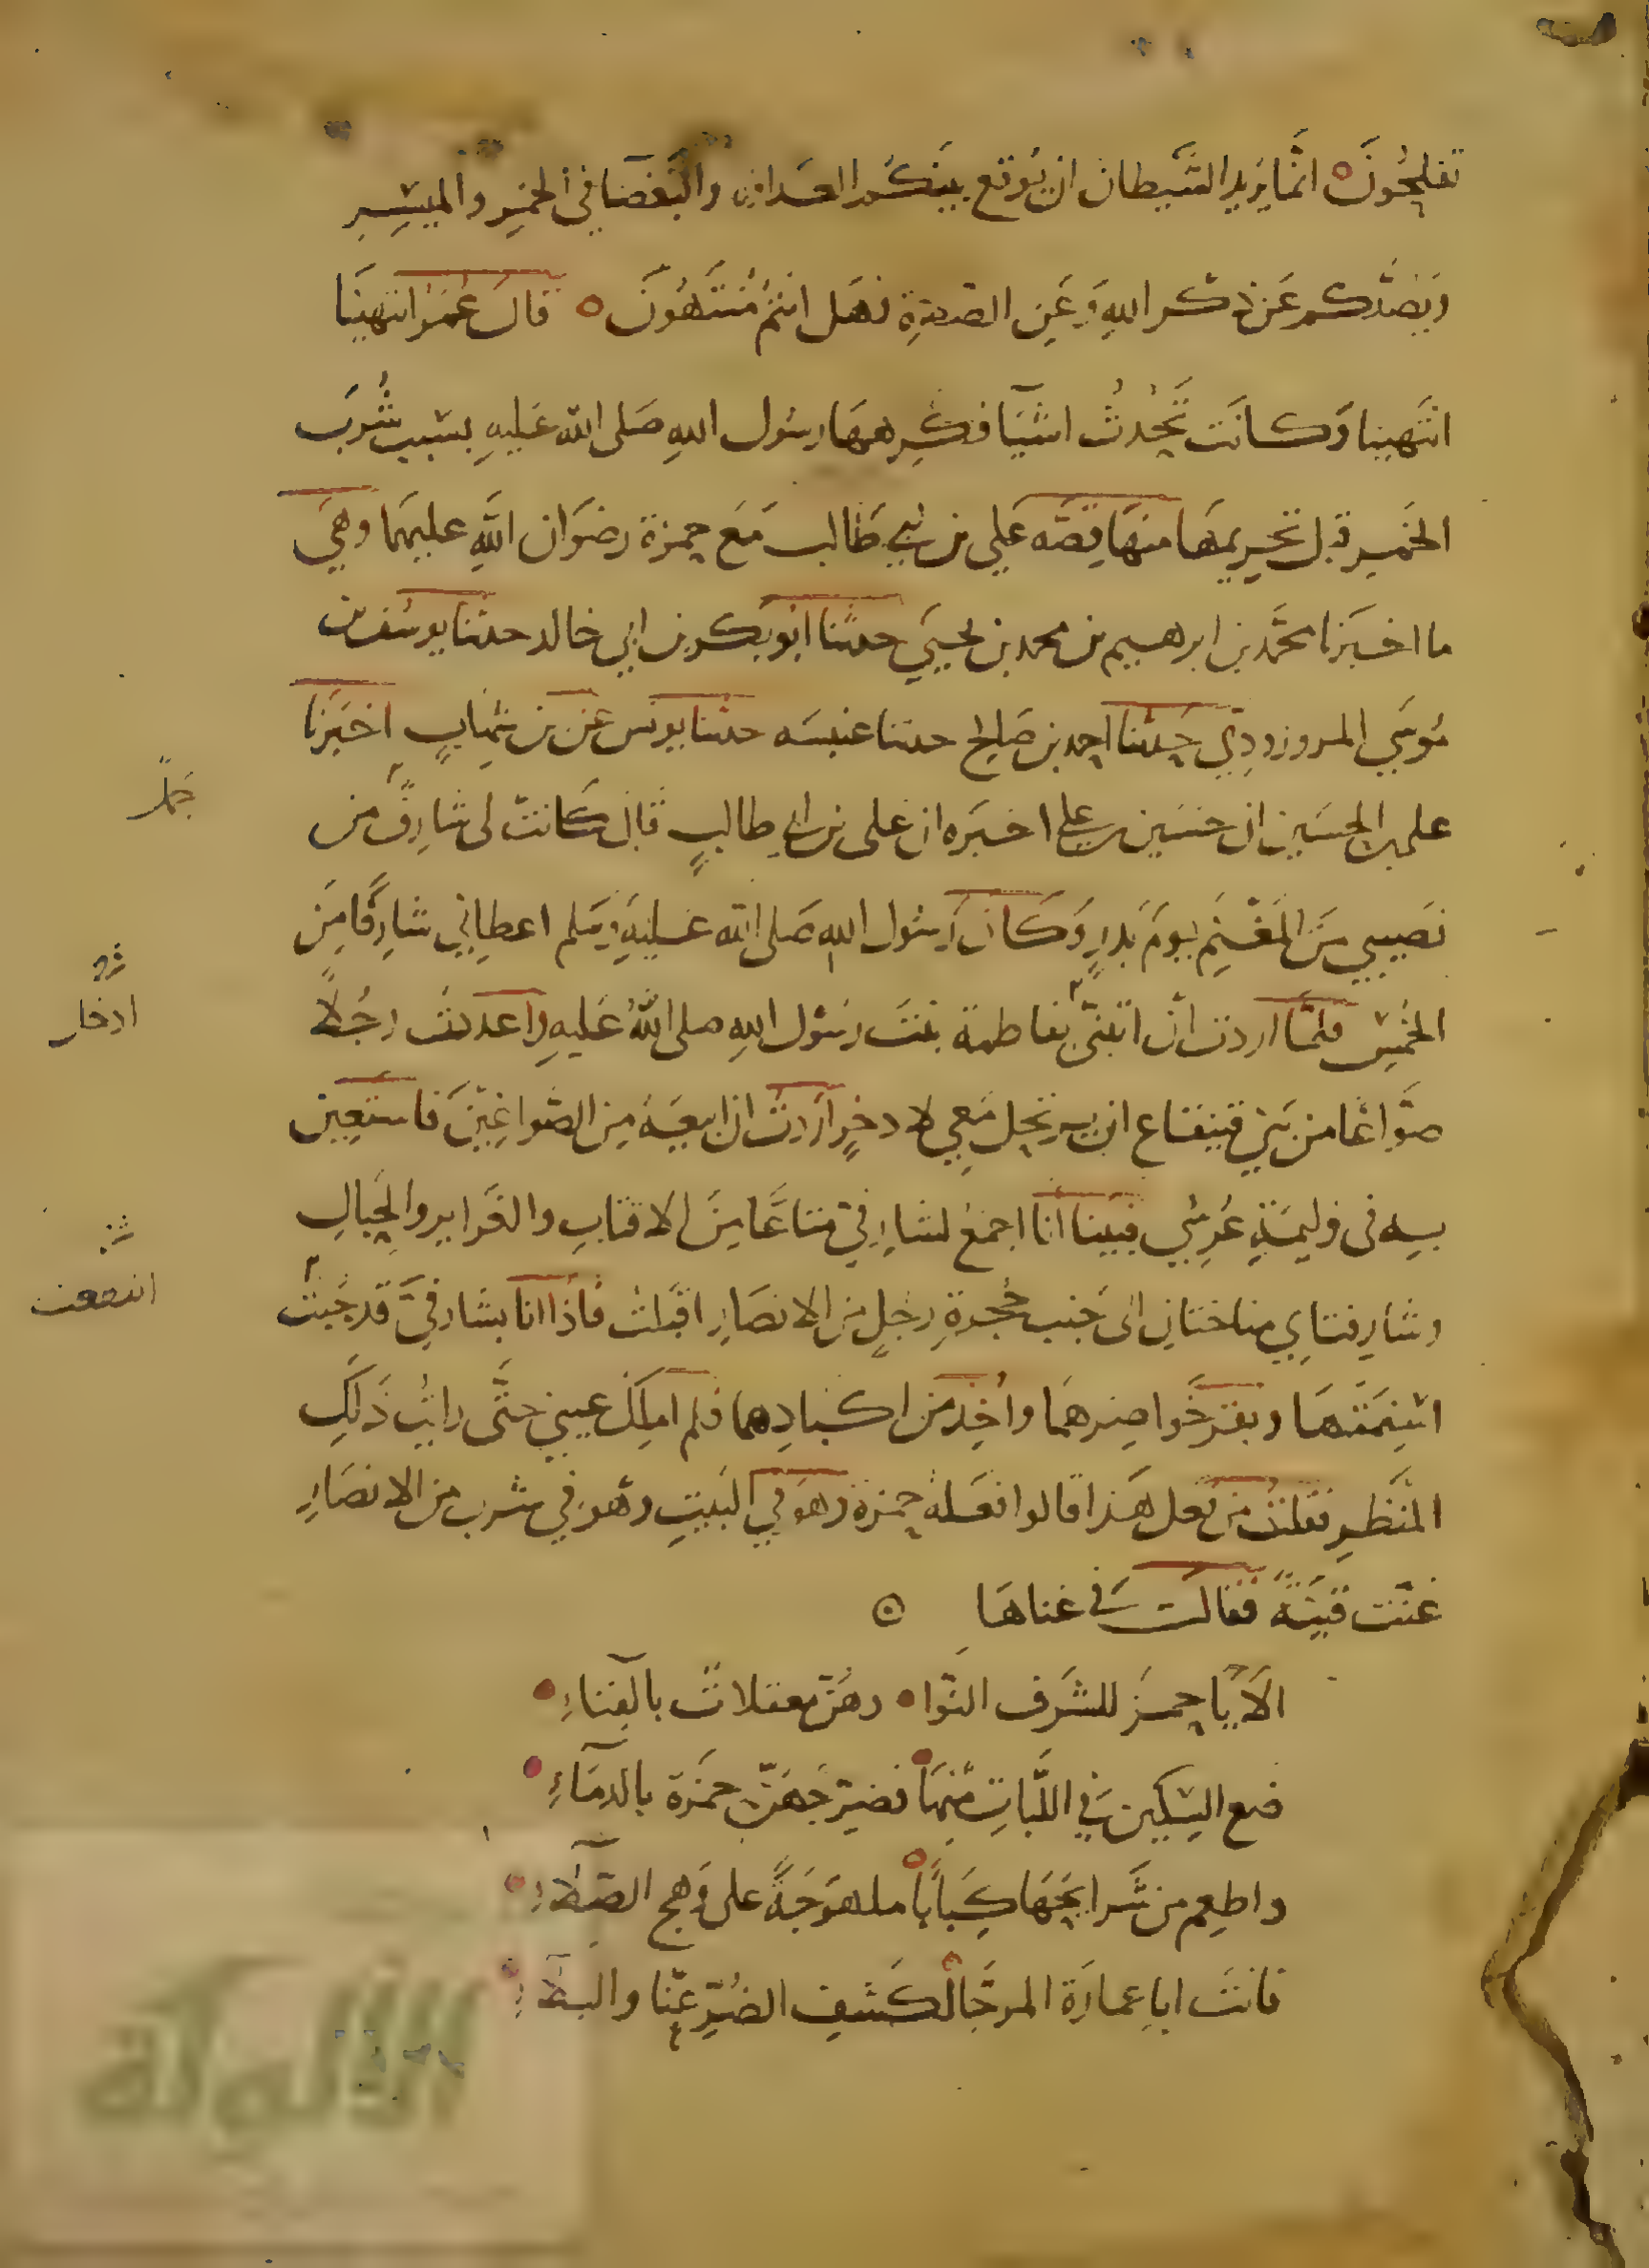 تفلحُونَ ه انمَّا يريد الشَّيطان ان يُوقع بينكُم العَداوة والبَغضَا في الخمْرِ والميْسِرِ
وَيَصُدَّكم عَن ذكر اللهِ وَعَنِ الصلوةِ فهَل انتمُ مُنتَهُونَ ه قالَ عُمَرُ انتهينَا
انتَهينا وَكانَت تَحْدثُ اشيَآ فكرِهَهَا رسُول اللهِ صَلى الله عَليهِ بسَبب شُرب
الخمرِ قبل تحريمهَا منهَا قصَّه عَلي بن ابي طَالب مَعَ حمزة رضوَان اللهِ عليهمَا وهيَ
ما اخبَرنا محمَّد بن ابرهيم بن محمد بن يحييَ حدثنا ابُو بكر بن ابي خالد حدثنا يوسُف بن
مُوسَي المروزودِي حدثنا احمد بن صَالح حدثنا عنبسَه حدثنا يونس عَن بن شِهابٍ اخبَرنا
علي بن الحسَين ان حسَين بن علي اخبَره ان على بن ابي طالبٍ قال كَانتْ لى شارِفٌ من
نصَيبي مِنَ المَغْنَم يومَ بَدرٍ وَكانَ رَسُول الله صَلى الله عَليهِ وسَلم اعطانِي شارِفًا مِنَ
الخمُسْ فلمَّا اردت انْ ابْتنىَ بفاطمة بنتَ رسُول اللهِ صلى اللهُ عَليهِ واعدتُ رجُلاً
صوَّاغًا من بَني قينقاع ان يرتحِل مَعِي لادخرٍ اَردتُ ان ابيعَهُ مِن الصَّواغِيْنَ فاستعِين
بهِ في وَليمَةِ عُرسي فبَينا انَا اجمعُ لشارِفيَّ متاعًا مِنَ الاقتابِ والغَراير والحِبَالِ
وشارِفتاي مناختان الى جَنب حُجرةِ رجُلٍ من الانصَارِ اقبَلتُ فاذَا انا بشارفيَّ قد جُبتْ
اسْنِمَتهَا وبقرَ خَواصِرهمَا واُخِذ مَن اكبادِهما فلم املِك عيني حتَّى رايتُ ذَلكِ
المنَظَرِ فقلتُ من فعل هَذا قالوا فعَلهُ حمزة وهوَ في البَيتِ وهُو في شرب من الانصَارِ
غنَّت قَينَةٌ فقالَتْ في غناهَا
الاَ يَا حمزَ للشرَف النّوا ه وهُنَّ معقلاتٌ بالفِناءِ
ضع السِّكين في اللَّباتِ مِنهَا فضرِّجهُنّ حمَزة بالدمَاءِ
واطِعم من شَرايحهَا كبَابًا ملهوَجَةً على وَهج الصِّلاءِ
فانتَ ابا عمارَة المرجَّا لكَشفِ الضُرِّ عنَّا والبلاءِ
جملًا
ادخار